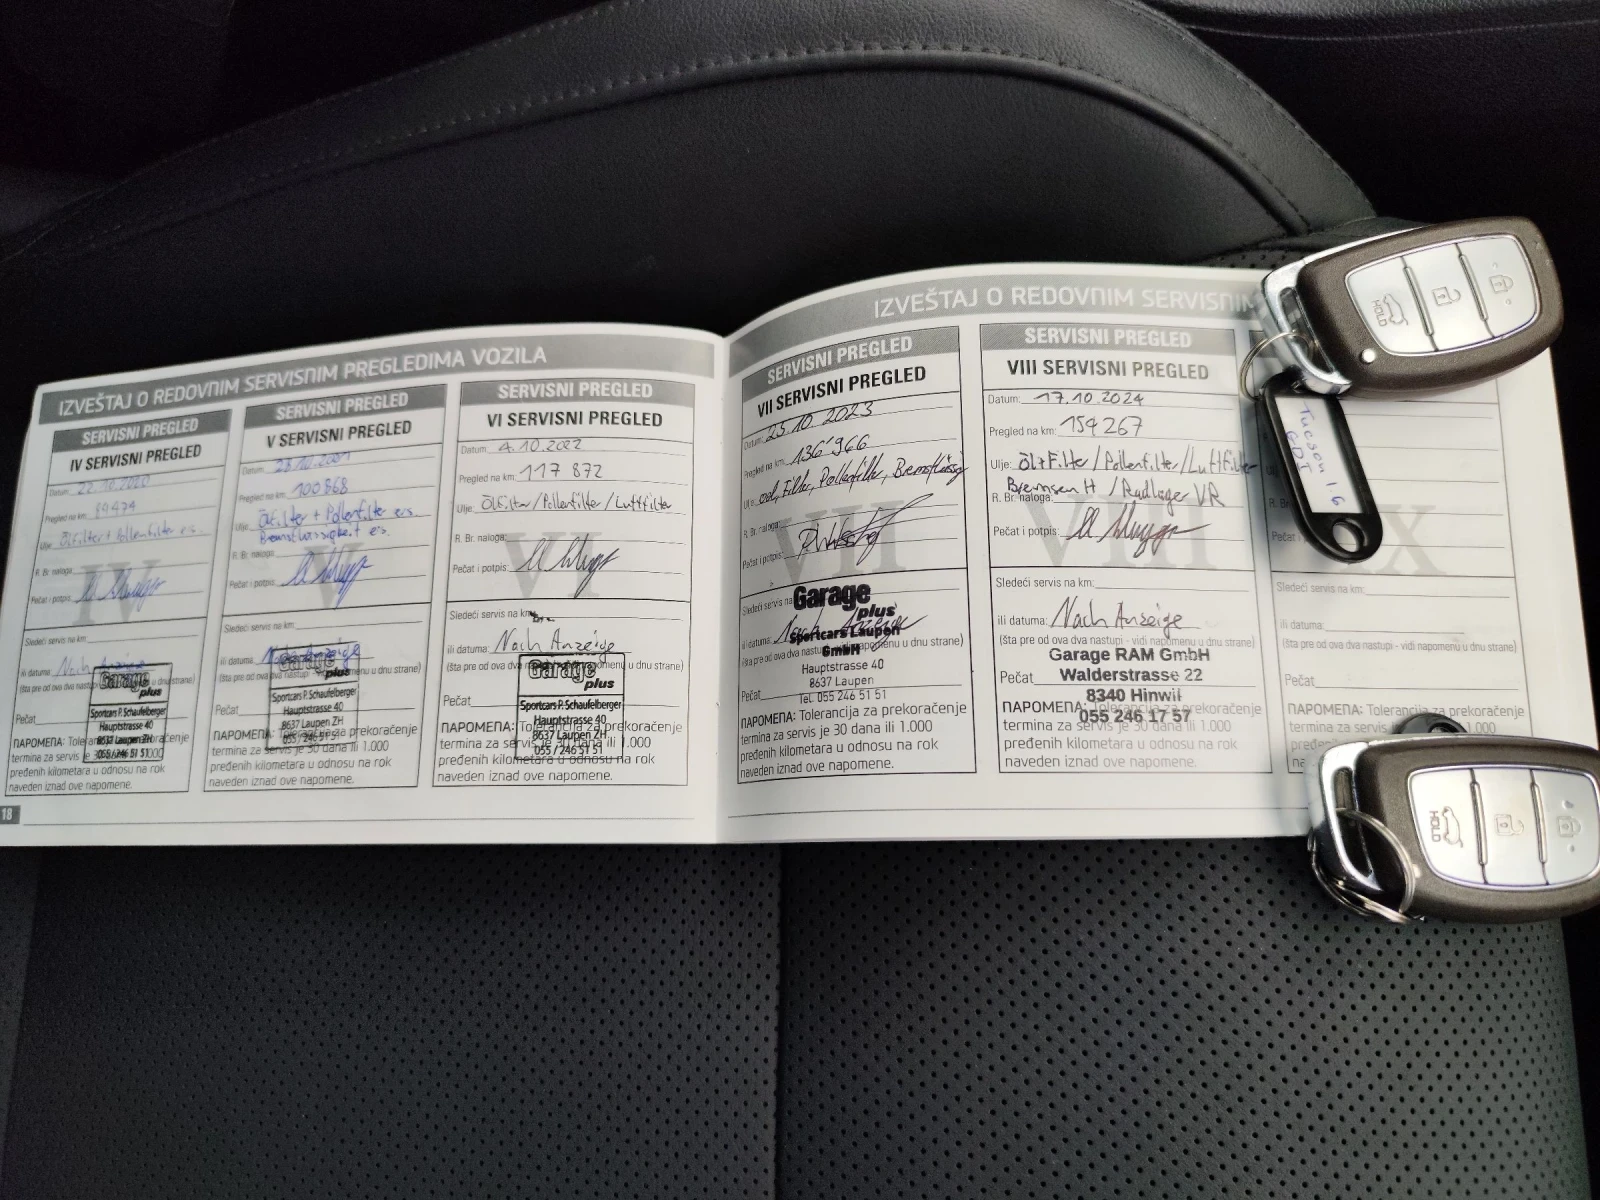 IZVEŠTAJ O REDOVNIM SERVISNIM PREGLEDIMA VOZILA
SERVISNI PREGLED
IV SERVISNI PREGLED
Datum: 22.10.2020
Pregled na km: 89474
Ulje: Ölfilter + Pollenfilter ers.
R. Br. naloga:
Pečat i potpis:
IV
Sledeći servis na km:
ili datuma: Nach Anzeige
(šta pre od ova dva nastupi u dnu strane)
Garage
plus
Sportcars P. Schaufelberger
Hauptstrasse 40
8637 Laupen ZH
055 / 246 51 51
Pečat
NAPOMENA: Tolerancija za prekoračenje
termina za servis je 30 dana ili 1.000
pređenih kilometara u odnosu na rok
naveden iznad ove napomene.
18
SERVISNI PREGLED
V SERVISNI PREGLED
Datum:
Pregled na km: 100868
Ulje: Ölfilter + Pollenfilter ers.
Bremsflüssigkeit ers.
R. Br. naloga:
Pečat i potpis:
V
Sledeći servis na km:
ili datuma: Nach Anzeige
(šta pre od ova dva napomenu u dnu strane)
Garage
plus
Sportcars P. Schaufelberger
Hauptstrasse 40
8637 Laupen ZH
055 / 246 51 51
Pečat
NAPOMENA: Tolerancija za prekoračenje
termina za servis je 30 dana ili 1.000
pređenih kilometara u odnosu na rok
naveden iznad ove napomene.
SERVISNI PREGLED
VI SERVISNI PREGLED
Datum: 4.10.2022
Pregled na km: 117 872
Ulje: Ölfilter / Pollenfilter / Luftfilter
R. Br. naloga:
Pečat i potpis:
VI
Sledeći servis na km:
ili datuma: Nach Anzeige
(šta pre od ova dva napomenu u dnu strane)
Garage
plus
Sportcars P. Schaufelberger
Hauptstrasse 40
8637 Laupen ZH
055 / 246 51 51
Pečat
NAPOMENA: Tolerancija za prekoračenje
termina za servis je 30 dana ili 1.000
pređenih kilometara u odnosu na rok
naveden iznad ove napomene.
IZVEŠTAJ O REDOVNIM SERVISNIM
SERVISNI PREGLED
VII SERVISNI PREGLED
Datum: 25.10.2023
Pregled na km: 136'966
Ulje: oel, Filter, Pollenfilter, Bremsflüssig
R. Br. naloga:
Pečat i potpis:
VII
Sledeći servis na
ili datuma: Nach Anzeige
Garage
plus
Sportcars Laupen
GmbH
Hauptstrasse 40
8637 Laupen
Tel. 055 246 51 51
Pečat
NAPOMENA: Tolerancija za prekoračenje
termina za servis je 30 dana ili 1.000
pređenih kilometara u odnosu na rok
naveden iznad ove napomene.
SERVISNI PREGLED
VIII SERVISNI PREGLED
Datum: 17.10.2024
Pregled na km: 154267
Ulje: Öl+Filter / Pollenfilter / Luftfilter
Bremsen H / Radlager VR
R. Br. naloga:
Pečat i potpis:
VIII
Sledeći servis na km:
ili datuma: Nach Anzeige
(šta pre od ova dva nastupi - vidi napomenu u dnu strane)
Garage RAM GmbH
Walderstrasse 22
8340 Hinwil
055 246 17 57
Pečat
NAPOMENA: Tolerancija za prekoračenje
termina za servis je 30 dana ili 1.000
pređenih kilometara u odnosu na rok
naveden iznad ove napomene.
X
Sledeći servis na km:
ili datuma:
(šta pre od ova dva nastupi - vidi napomenu u dnu strane)
Pečat
NAPOMENA: Tolerancija za prekoračenje
HOLD
Tucson 1.6
GDI
HOLD